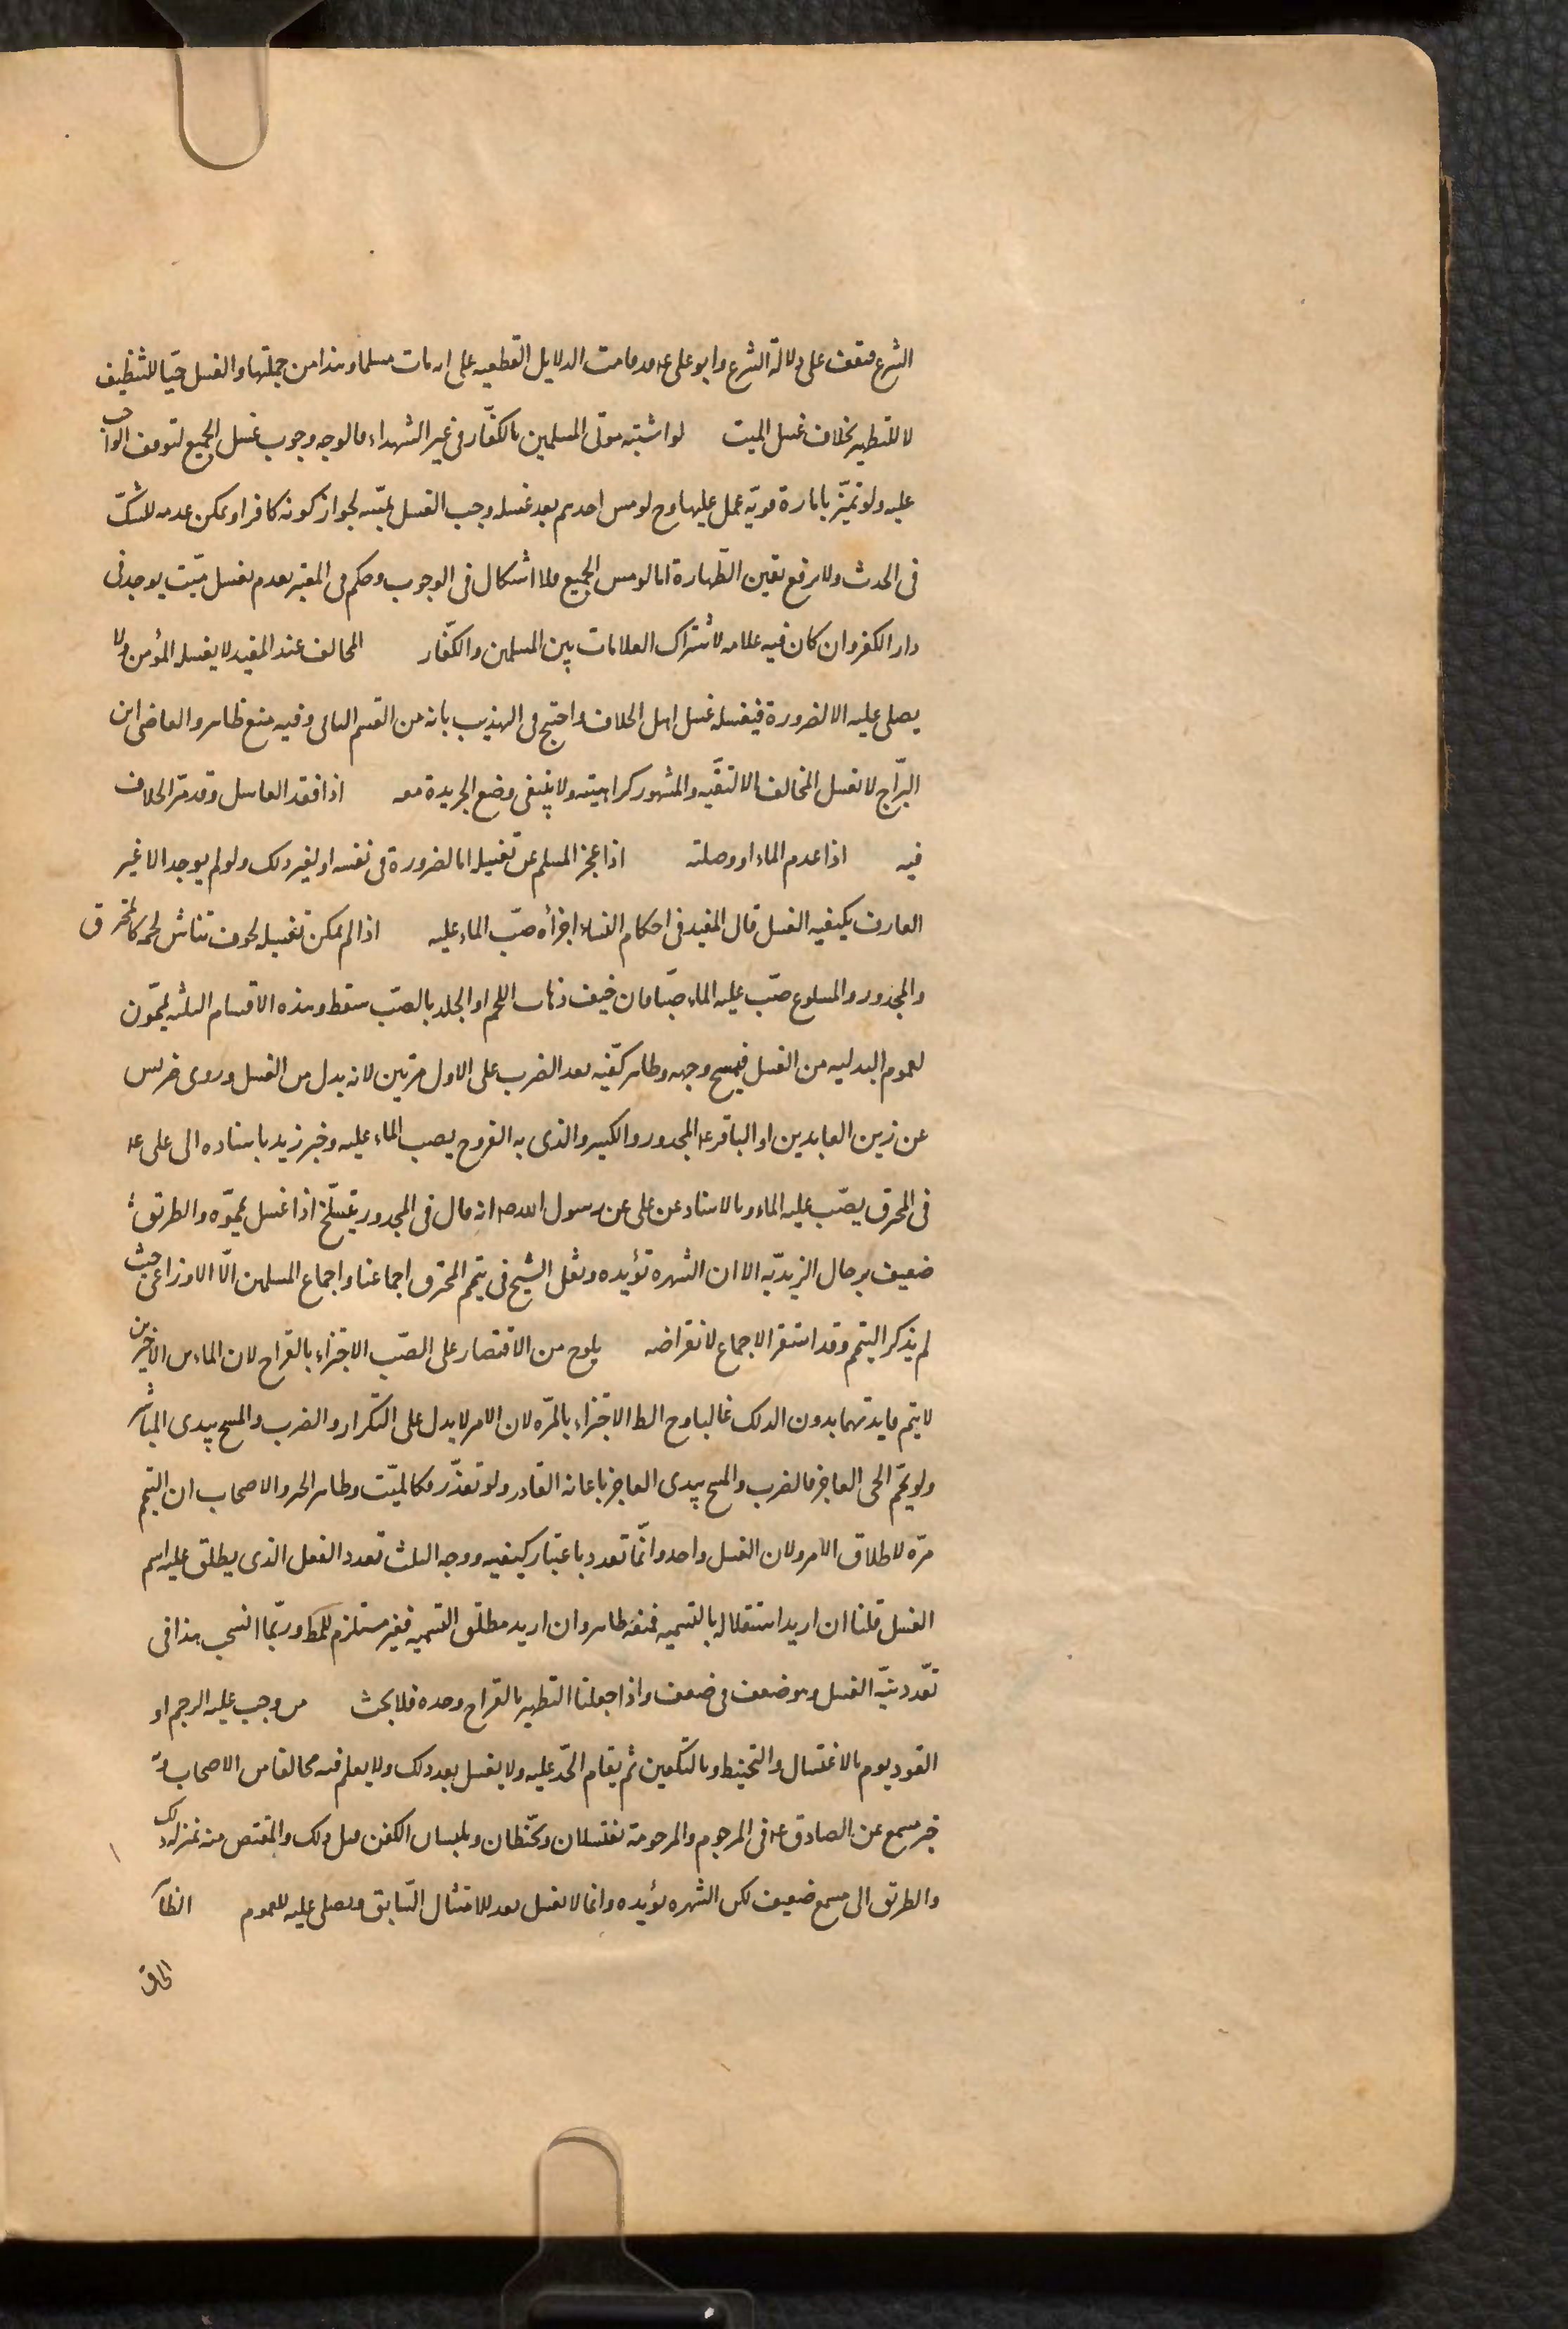 الشرع فيقف على دلالة الشرع وابو على ع قد قامت الدلايل القطعيه على انه مات مسلما وهذا من جملتها والغسل حيّا للتنظيف
لا للتطهير بخلاف غسل الميت لو اشتبه موتى المسلمين بالكفّار فى غير الشهداء فالوجه وجوب غسل الجميع لتوقف الواجب
عليه ولو تميّز بامارة قويّه عمل عليها وح لو مس احدهم بعد غسله وجب الغسل بمسّه لجواز كونه كافرا ويمكن عدمه للشكّ
فى الحدث ولا يرفع يقين الطّهارة اما لو مس الجميع فلا اشكال فى الوجوب وحكم فى المعتبر بعدم تغسل ميّت يوجد فى
دار الكفر وان كان فيه علامه لاشتراك العلامات بين المسلمين والكفّار المخالف عند المفيد لا يغسله المؤمن ولا
يصلى عليه الا لضرورة فيغسله غسل اهل الخلاف واحتج فى التهذيب بانه من القسم الثانى وفيه منع ظاهر والقاضى ابن
البرّاج لا تغسل المخالف الا لتقيّه والمشهور كراهيته ولا ينبغى وضع الجريدة معه اذا فقد الغاسل وقد مرّ الخلاف
فيه اذا عدم الماء او وصلته اذا عجز المسلم عن تغسيله اما لضرورة فى نفسه او لغير ذلك ولو لم يوجد الا غير
العارف بكيفيه الغسل قال المفيد فى احكام النساء اجزأه صبّ الماء عليه اذا لم يمكن تغسيله لخوف تناثر لحمه كالمحترق
والمجدور والملسوع صبّ عليه الماء صبّا فان خيف ذهاب اللحم او الجلد بالصبّ سقط وهذه الاقسام الثلثه ييمّون
لعموم البدليه من الغسل فيمسح وجهه وظاهر كفّيه بعد الضرب على الاول مرتين لانه بدل من الغسل وروى ضريس
عن زين العابدين او الباقر ع المجدور والكسير والذى به القروح يصب الماء عليه وخبر زيد باسناده الى على ع
فى المحرق يصبّ عليه الماء وبالاسناد عن على عن رسول الله ص انه قال فى المجدور يتسلّخ اذا غسل يمّموه والطريق
ضعيف برجال الزيديّه الا ان الشهره تؤيده ونقل الشيخ فى تيمم المحترق اجماعنا واجماع المسلمين الّا الاوزاعى حيث
لم يذكر التيمم وقد استقر الاجماع لانقراضه يلوح من الاقتصار على الصّب الاجتزاء بالقراح لان الماءين الاخرين
لا يتم فايدتهما بدون الدلك غالبا وح الظ الاجتزاء بالمرّه لان الامر لا يدل على التكرار والضرب والمسح بيدى المباشر
ولو يمّم الحى العاجز فالضرب والمسح بيدى العاجز باعانة القادر ولو تعذّر فكالميّت وظاهر الخبر والاصحاب ان التيمم
مرّه لاطلاق الامر ولان الغسل واحد وانّما تعدد باعتبار كيفيه ووجه الثلث تعدد الغسل الذى يطلق عليه اسم
الغسل قلنا ان اريد استقلاله بالتسميه فمنعه ظاهر وان اريد مطلق التسميه فغير مستلزم للمط وربّما انسحب هذا فى
تعّدد نيّه الغسل وهو ضعف فى ضعف واذا جعلنا التطهير بالقراح وحده فلا بحث من وجب عليه الرجم او
القود يؤمر بالاغتسال والتحنيط وبالتكفين ثم يقام الحدّ عليه ولا يغسل بعد ذلك ولا يعلم فيه مخالفا من الاصحاب وبه
خبر مسمع عن الصادق ع فى المرجوم والمرجومة يغتسلان ويحنّطان ويلبسان الكفن قبل ذلك والمقتص منه بمنزلة ذلك
والطريق الى مسمع ضعيف لكن الشهره تؤيده وانما لا يغسل بعد للامتثال السّابق ويصلى عليه للعموم الظاهر
الحاق